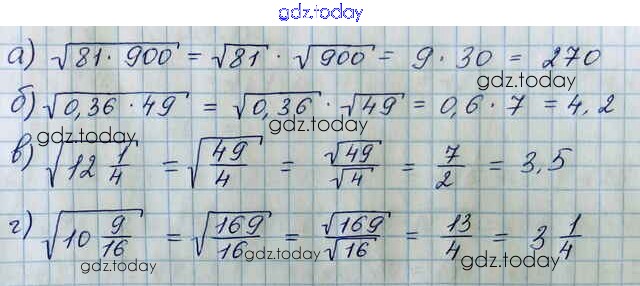 gdz.today
а) √81 · 900 = √81 · √900 = 9 · 30 = 270
gdz.today
gdz.today
б) √0,36 · 49 = √0,36 · √49 = 0,6 · 7 = 4,2
gdz.today
gdz.today
в) √12 1/4 = √49/4 = √49/√4 = 7/2 = 3,5
г) √10 9/16 = √169/16 = √169/√16 = 13/4 = 3 1/4
gdz.today
gdz.today
gdz.today